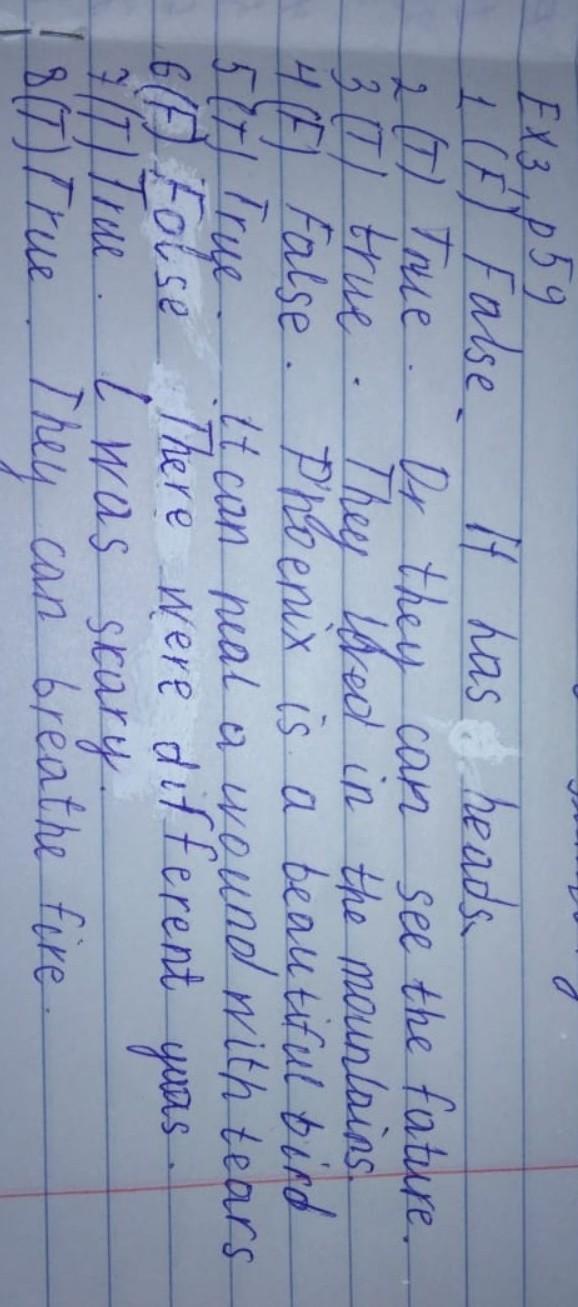 Ex3, p59
1 (F) False. It has heads.
2 (T) True. Or they can see the fature.
3 (T) true. They lived in the mountains.
4 (F) False. Phoenix is a beautiful bird
5 (T) True. It can heal a wound with tears
6 (F) False There were different
7 (T) True. I was skary.
8 (T) True. They can breathe fire.